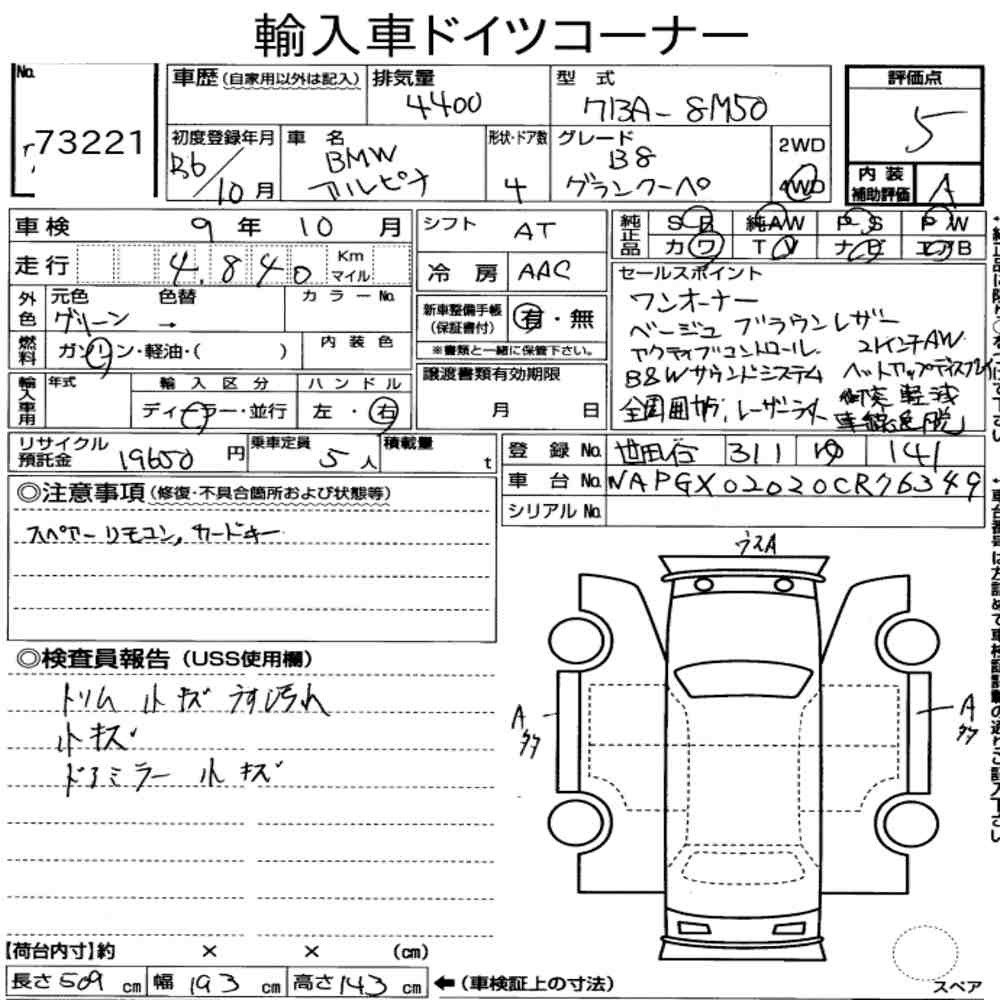 輸入車ドイツコーナー
No. 73221
車歴 (自家用以外は記入)
排気量 4400
型式 7BA-8M50
評価点 5
初度登録年月 R6/10月
車名 BMW アルピナ
形状・ドア数 4
グレード B8 グランクーペ
2WD 4WD
内装補助評価 A
車検 9年 10月
シフト AT
純正品 SR 純AW PS PW
カワ TV ナビ エアB
走行 4,840 Km マイル
冷房 AAC
セールスポイント
ワンオーナー
ベージュ ブラウンレザー
アクティブコントロール 21インチAW
B&Wサウンドシステム ヘットアップディスプレイ
全周囲カメラ レーザーライト 衝突軽減
車線逸脱
外色 元色 グリーン 色替 → カラーNo.
新車整備手帳 (保証書付) 有・無
※書類と一緒に保管下さい。
燃料 ガソリン・軽油・( ) 内装色
譲渡書類有効期限
月 日
輸入車用 年式 輸入区分 ディーラー・並行 ハンドル 左・右
リサイクル預託金 19650円
乗車定員 5人
積載量 t
登録No. 世田谷 311 ゆ 141
車台No. NAPGX02020CR76349
シリアルNo.
◎注意事項 (修復・不具合箇所および状態等)
スペアーリモコン, カードキー
ウスA
◎検査員報告 (USS使用欄)
トリム小キズ うすい汚れ
小キズ
ドアミラー小キズ
A タタ
A タタ
【荷台内寸】約 × × (cm)
長さ509cm 幅193cm 高さ143cm ←(車検証上の寸法)
スペア